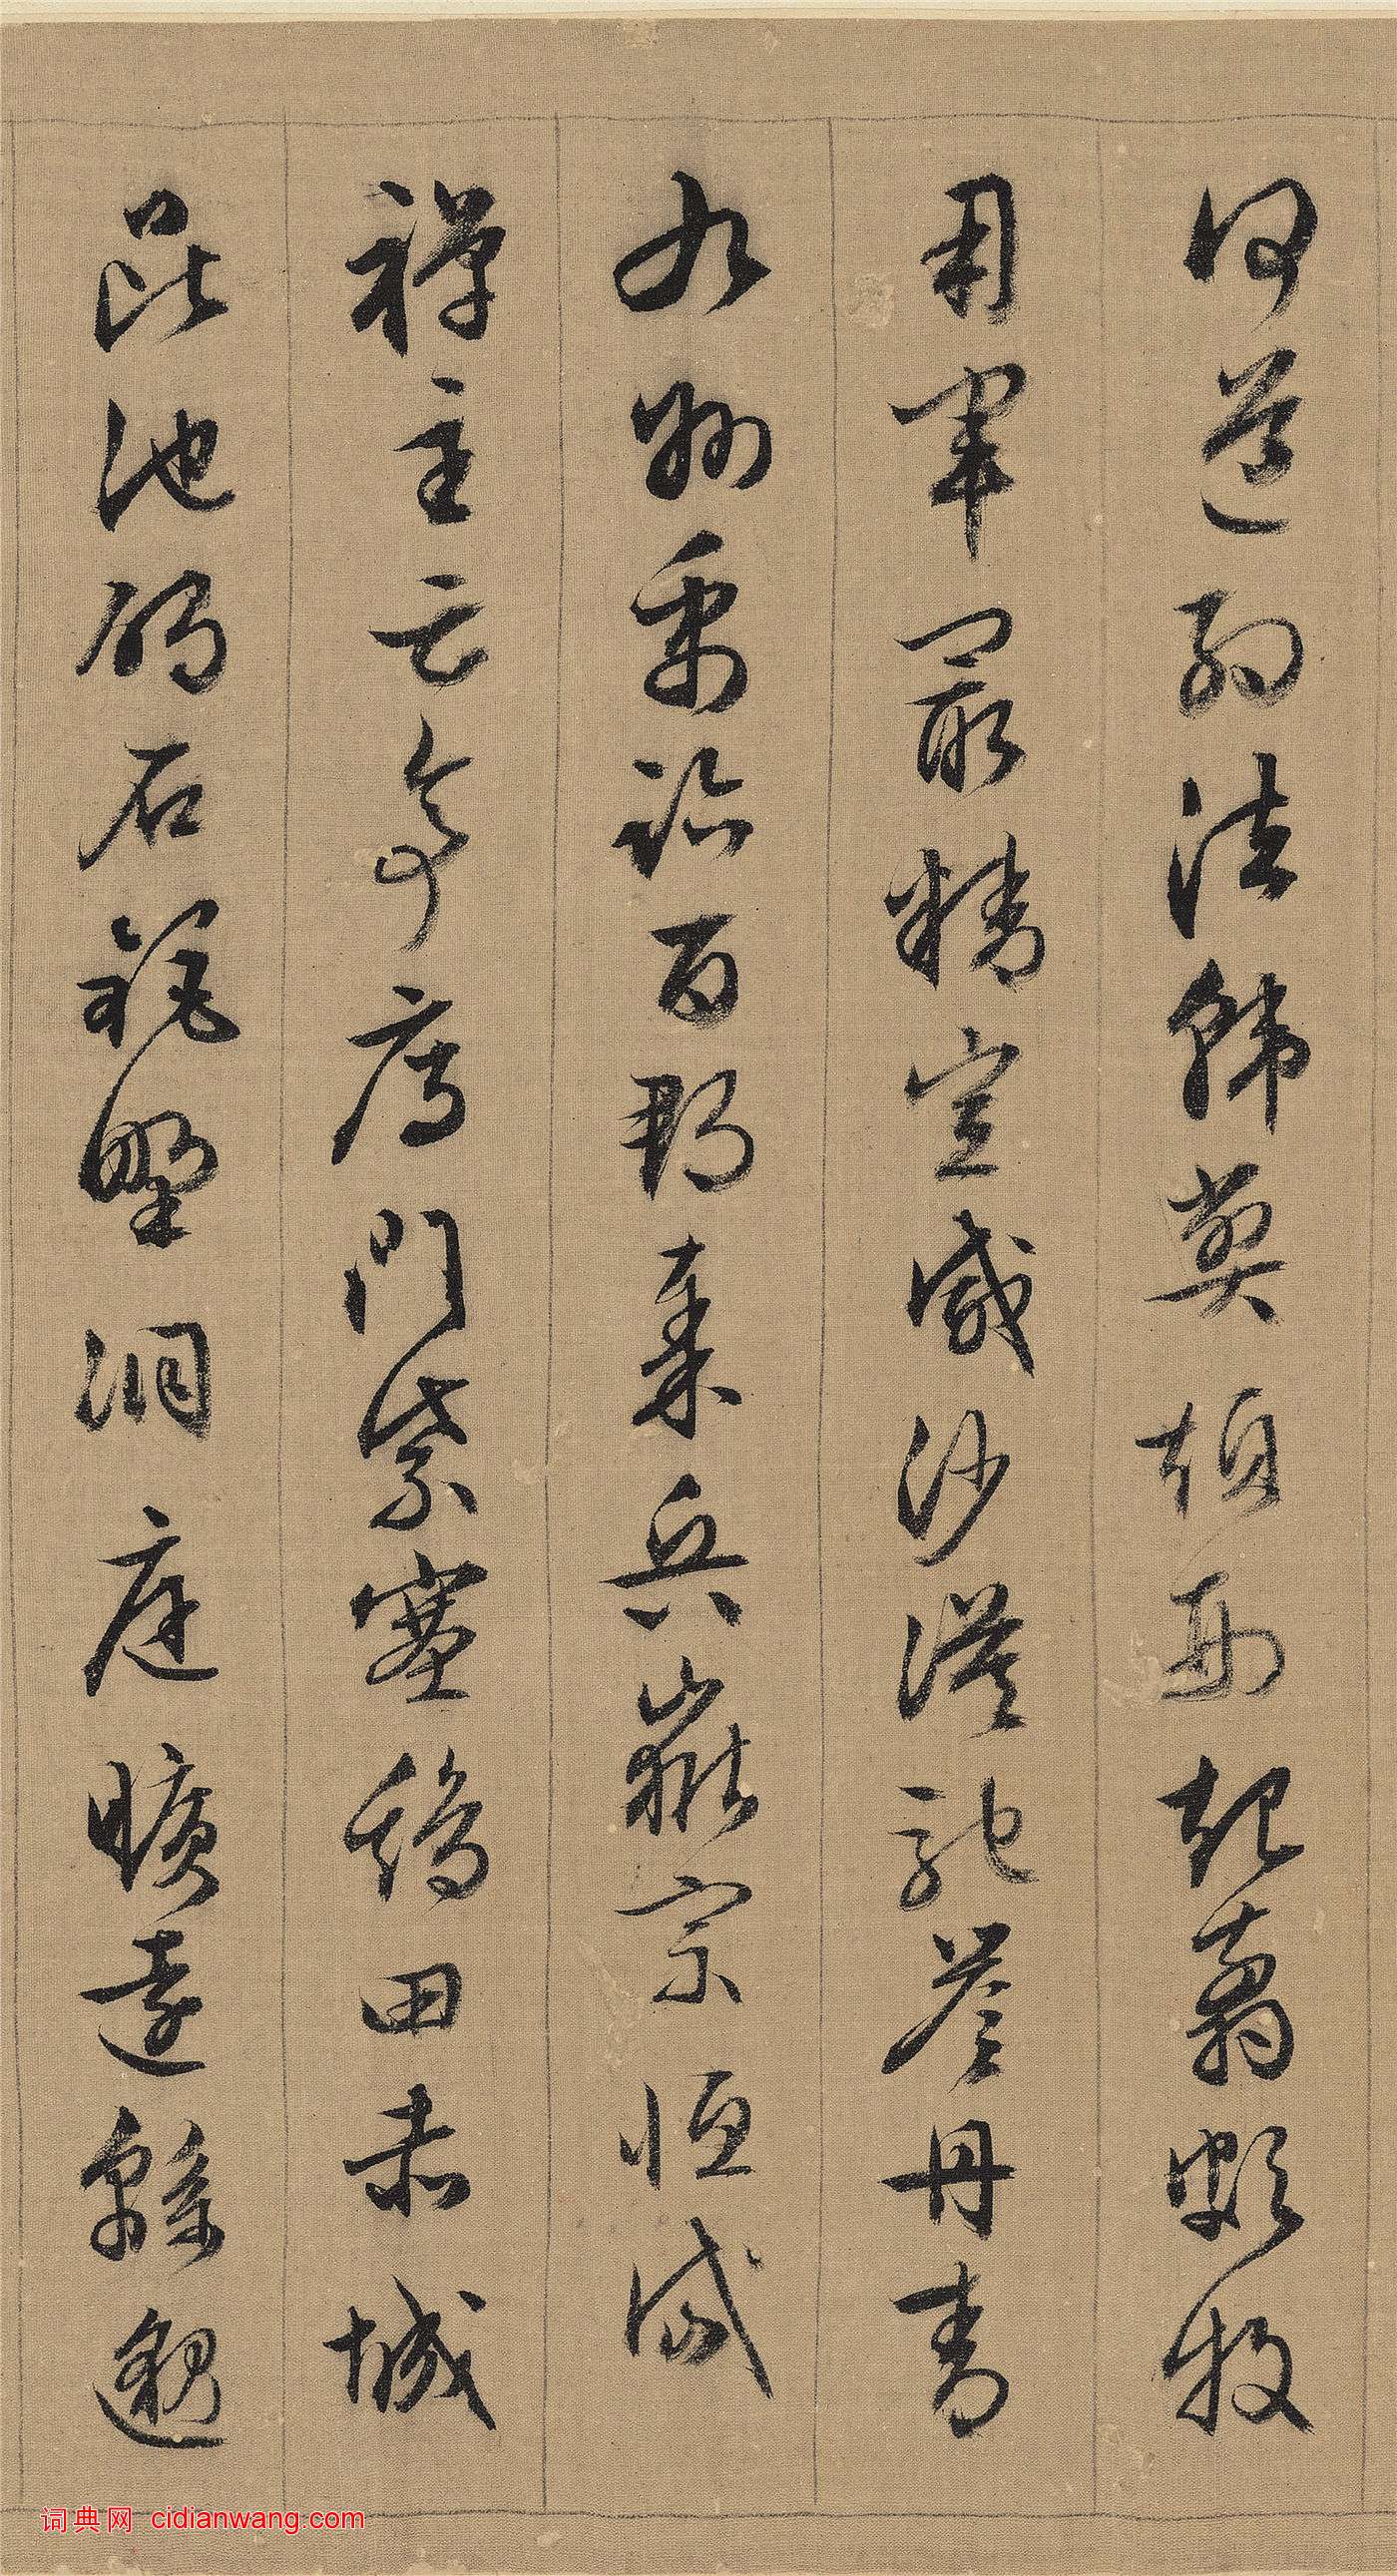 何遵約法韓弊煩刑起翦頗牧
用軍最精宣威沙漠馳譽丹青
九州禹跡百郡秦并嶽宗恒岱
禪主云亭雁門紫塞雞田赤城
昆池碣石鉅野洞庭曠遠緜邈
词典网 cidianwang.com